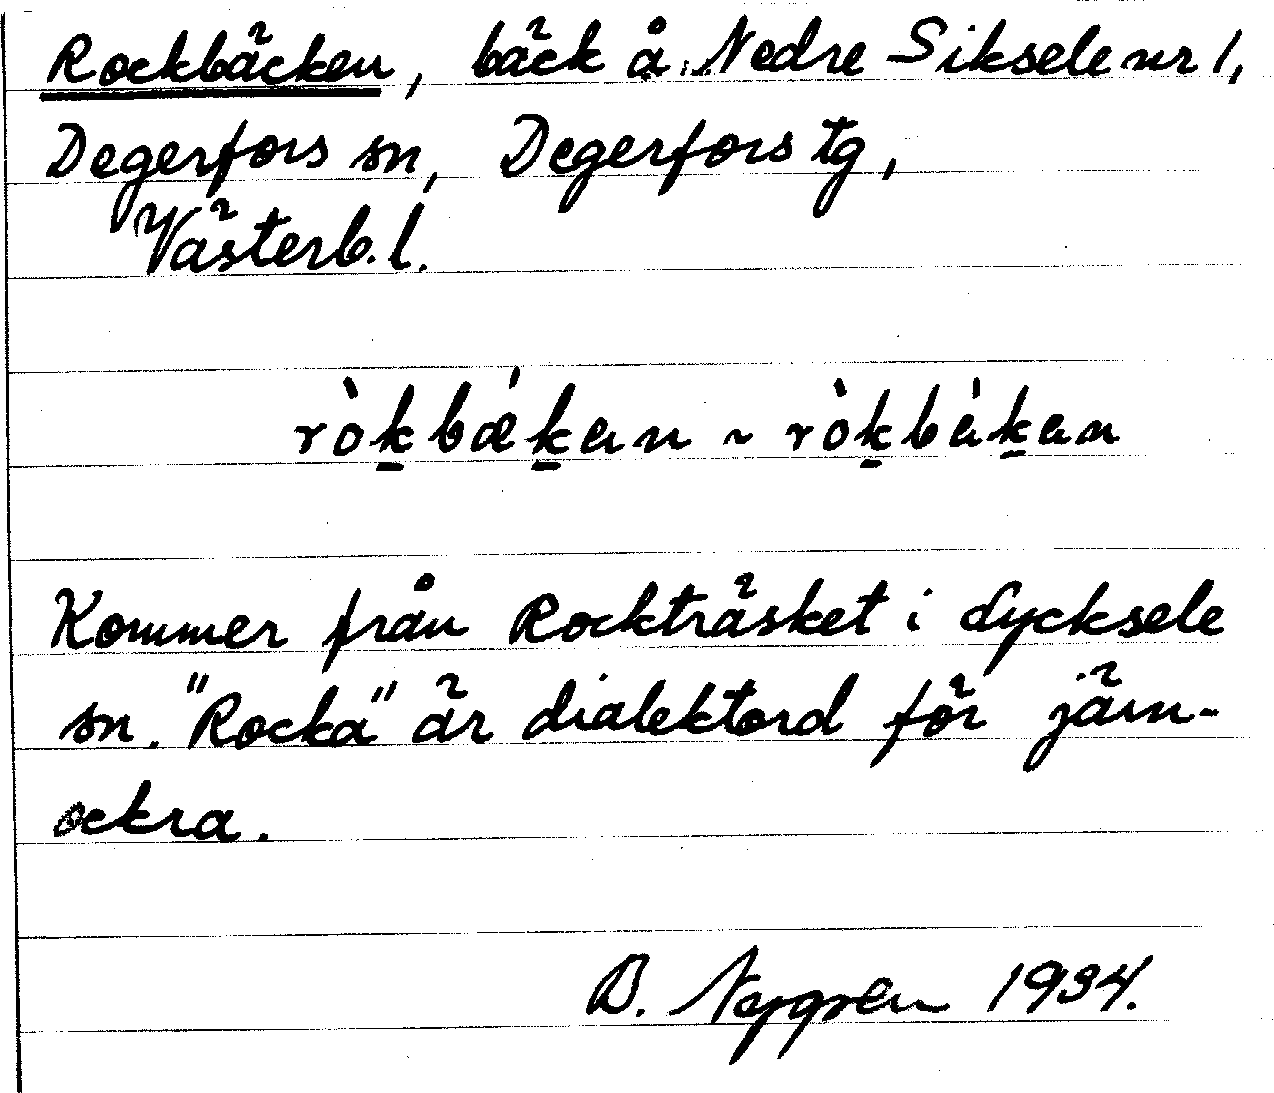 Rockbäcken, bäck å Nedre Siksele nr 1,
Degerfors sn, Degerfors tg,
Västerb. l.
ròk̲bǽk̲en ~ ròk̲bèk̲en
Kommer från Rockträsket i Lycksele
sn. "Rocka" är dialektord för järn-
ockra.
B. Nygren 1934.